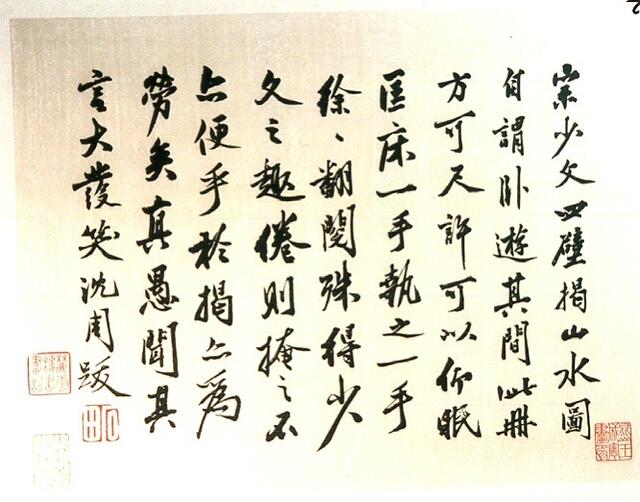 宗少文四壁揭山水圖
自謂卧遊其間此冊
方可尺許可以仰眠
匡床一手執之一手
徐、翻閱殊得少
文之趣倦則掩之不
亦便乎於揭亦為
勞矣真愚聞其
言大發笑沈周跋